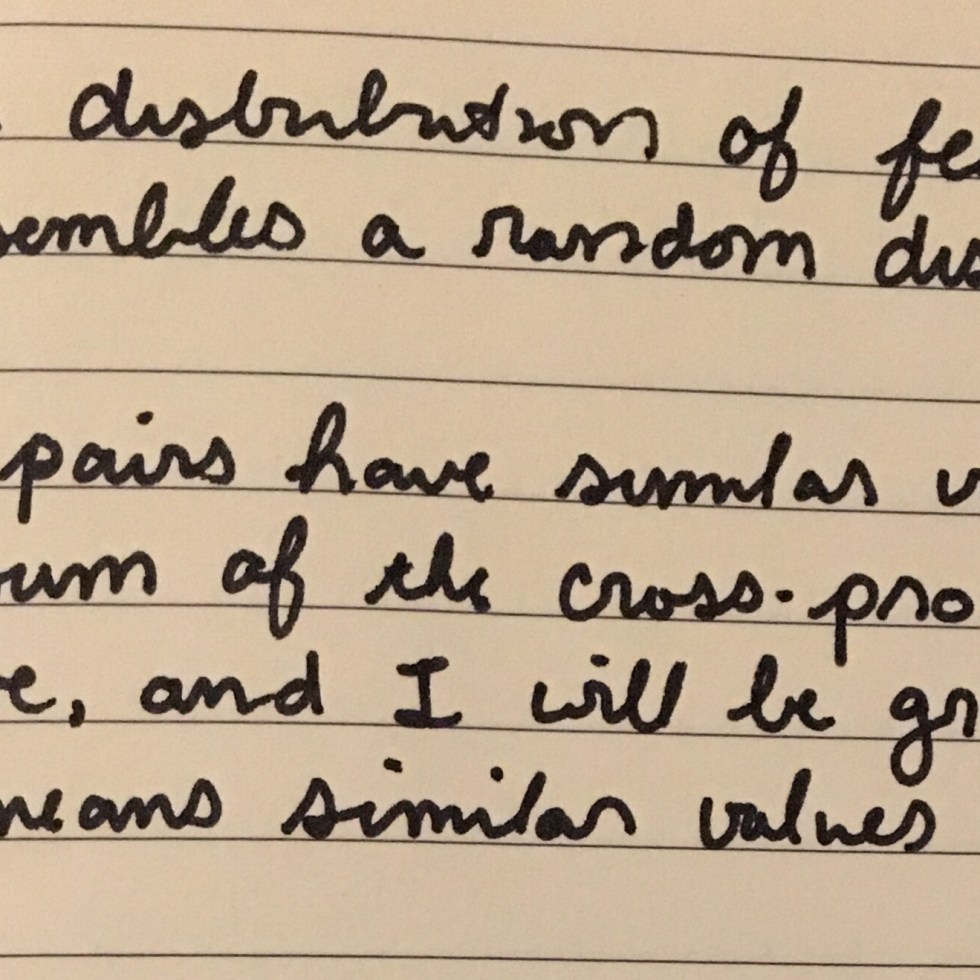 distribution of fe
sembles a random dis
pairs have similar v
um of the cross-pro
e, and I will be gr
means similar values